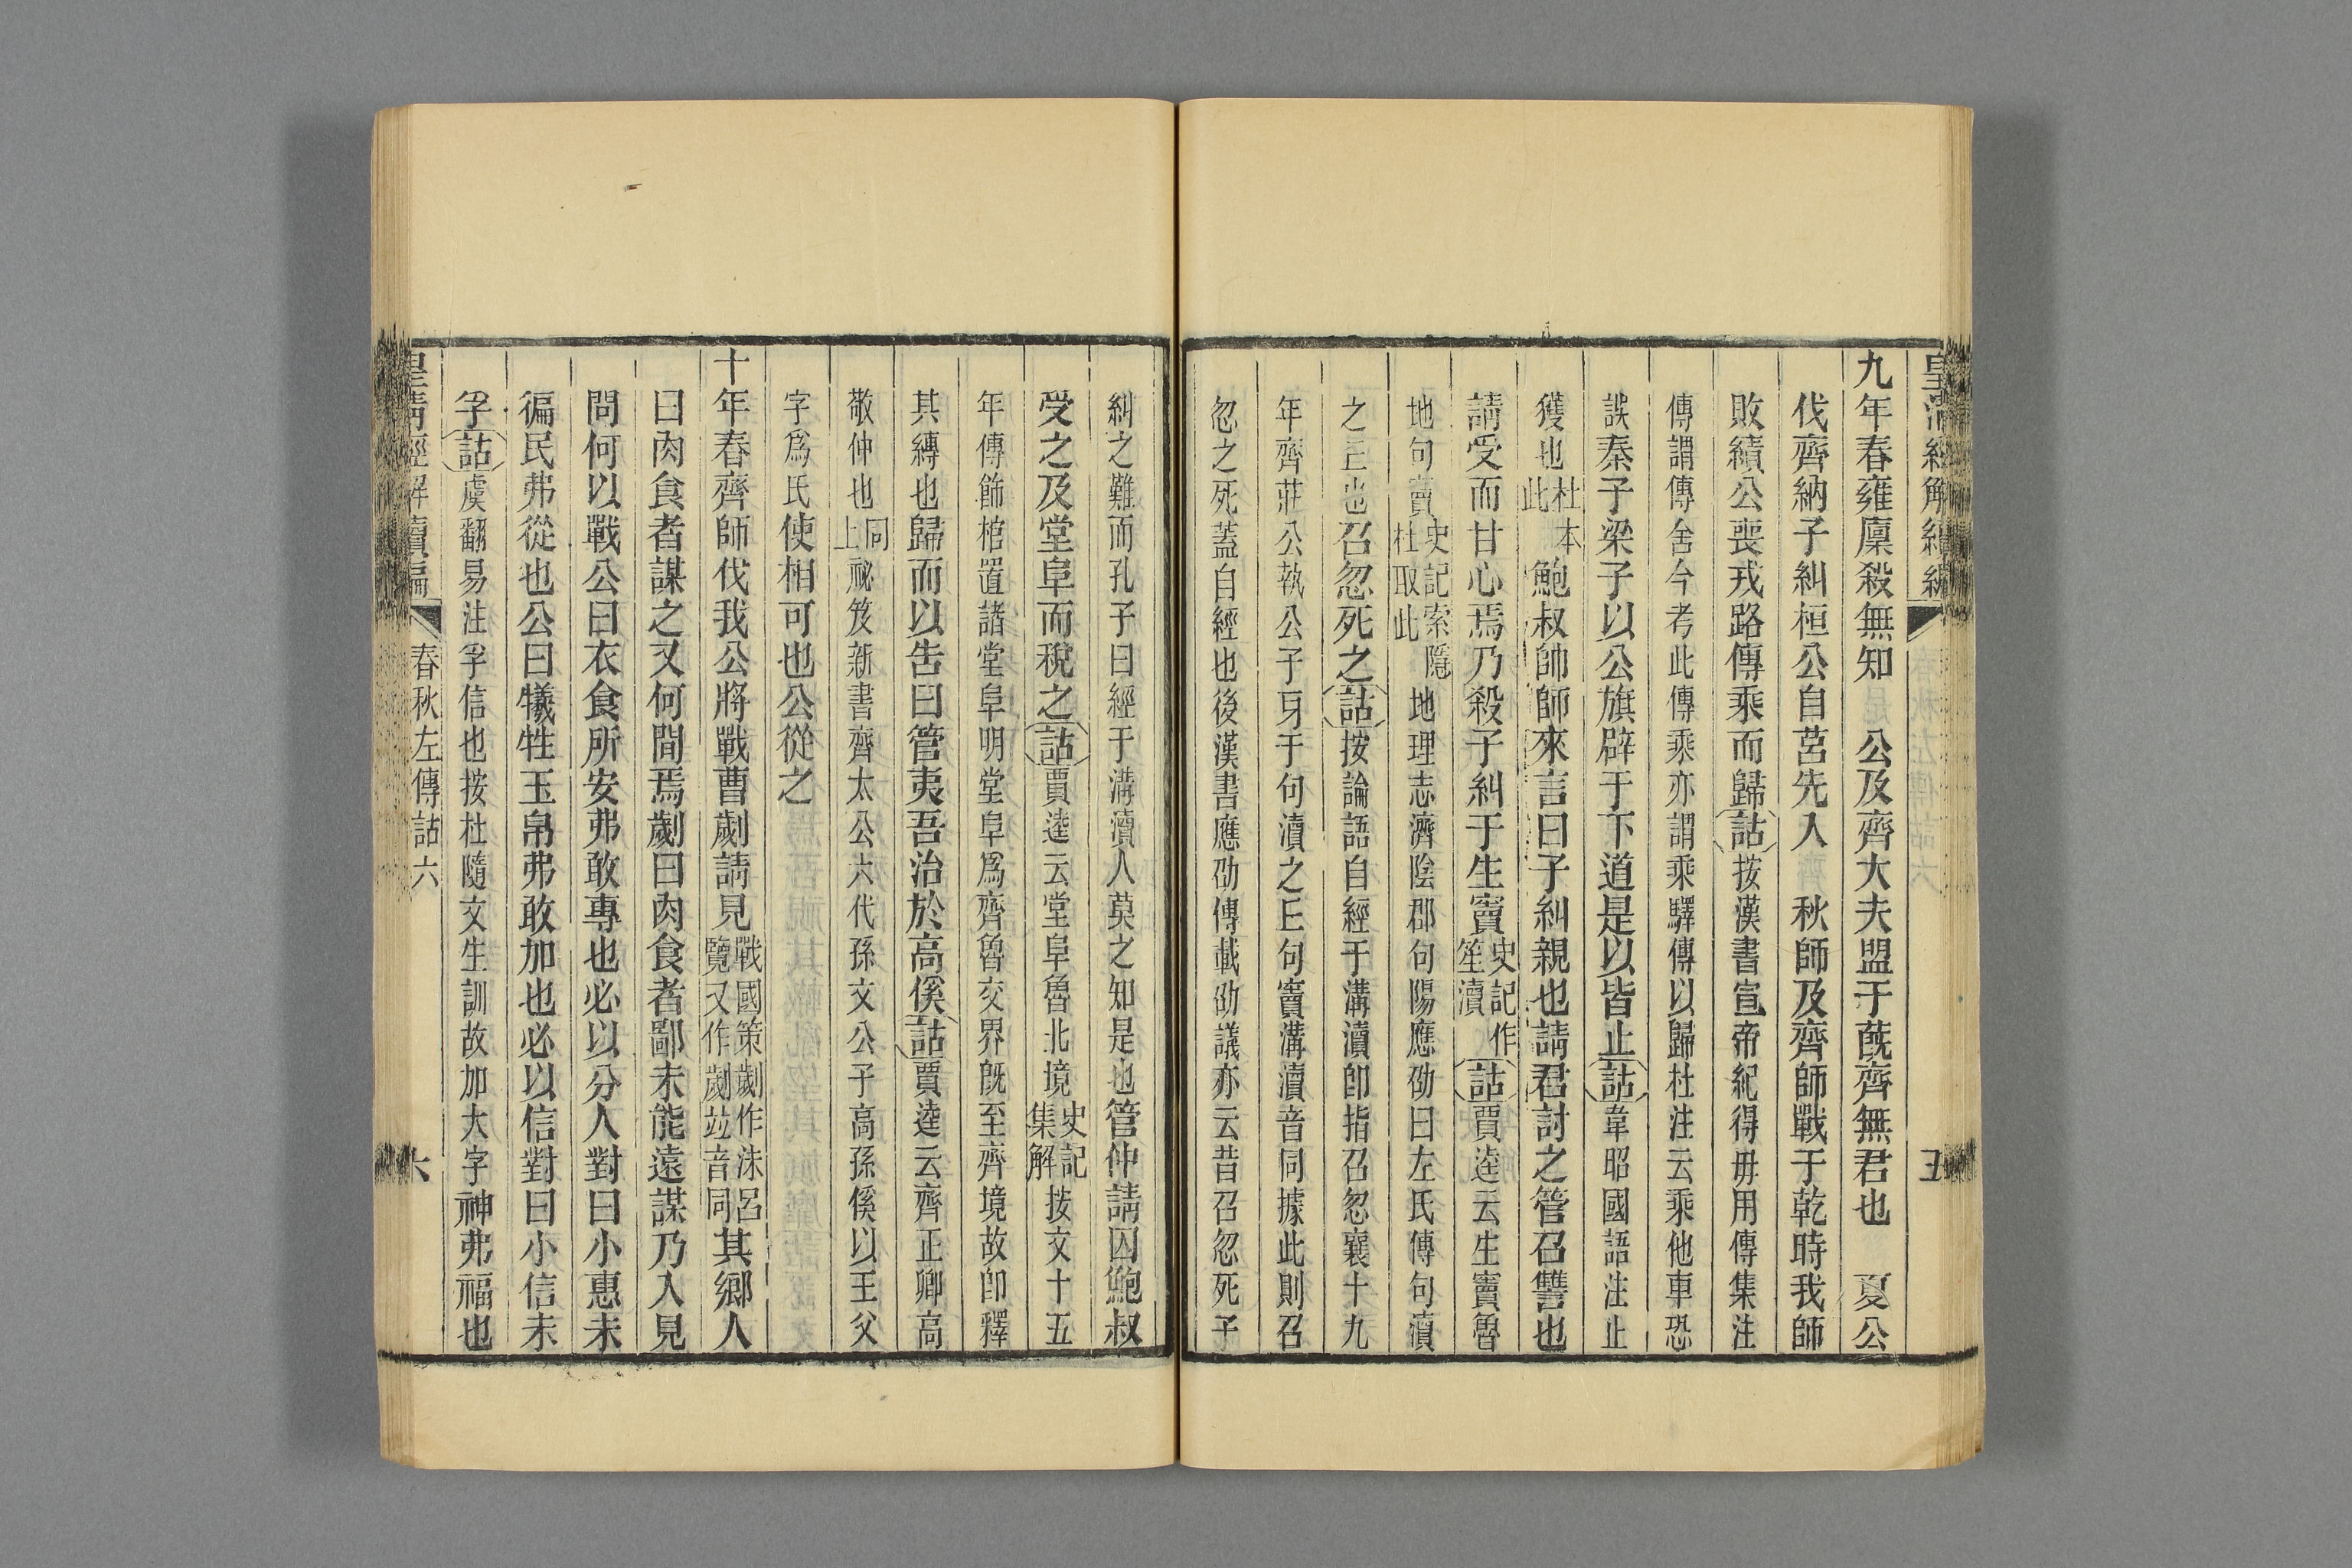 皇清經解續編
五
九年春雍廩殺無知　公及齊大夫盟于蔇齊無君也　夏公
伐齊納子糾桓公自莒先入　秋師及齊師戰于乾時我師
敗績公喪戎路傳乘而歸詁按漢書宣帝紀得毋用傳集注
傳謂傳舍今考此傳乘亦謂乘驛傳以歸杜注云乘他車恐
誤秦子梁子以公旗辟于下道是以皆止詁韋昭國語注止
獲也杜本此鮑叔帥師來言曰子糾親也請君討之管召讐也
請受而甘心焉乃殺子糾于生竇史記作笙瀆詁賈逵云生竇魯
地句竇史記索隱杜取此地理志濟陰郡句陽應劭曰左氏傳句瀆
之𠀉也召忽死之詁按論語自經于溝瀆卽指召忽襄十九
年齊莊公執公子牙于句瀆之𠀉句竇溝瀆音同據此則召
忽之死蓋自經也後漢書應劭傳載劭議亦云昔召忽死子
糾之難而孔子曰經于溝瀆人莫之知是也管仲請囚鮑叔
受之及堂阜而稅之詁賈逵云堂阜魯北境史記集解按文十五
年傳飾棺置諸堂阜明堂阜爲齊魯交界旣至齊境故卽釋
其縛也歸而以告曰管夷吾治於高傒詁賈逵云齊正卿高
敬仲也同上祕笈新書齊太公六代孫文公子高孫傒以王父
字爲氏使相可也公從之
十年春齊師伐我公將戰曹劌請見戰國策劌作沫呂覽又作劌竝音同其鄉人
曰肉食者謀之又何間焉劌曰肉食者鄙未能遠謀乃入見
問何以戰公曰衣食所安弗敢專也必以分人對曰小惠未
徧民弗從也公曰犧牲玉帛弗敢加也必以信對曰小信未
孚詁虞翻易注孚信也按杜隨文生訓故加大字神弗福也
皇清經解續編
春秋左傳詁六
六